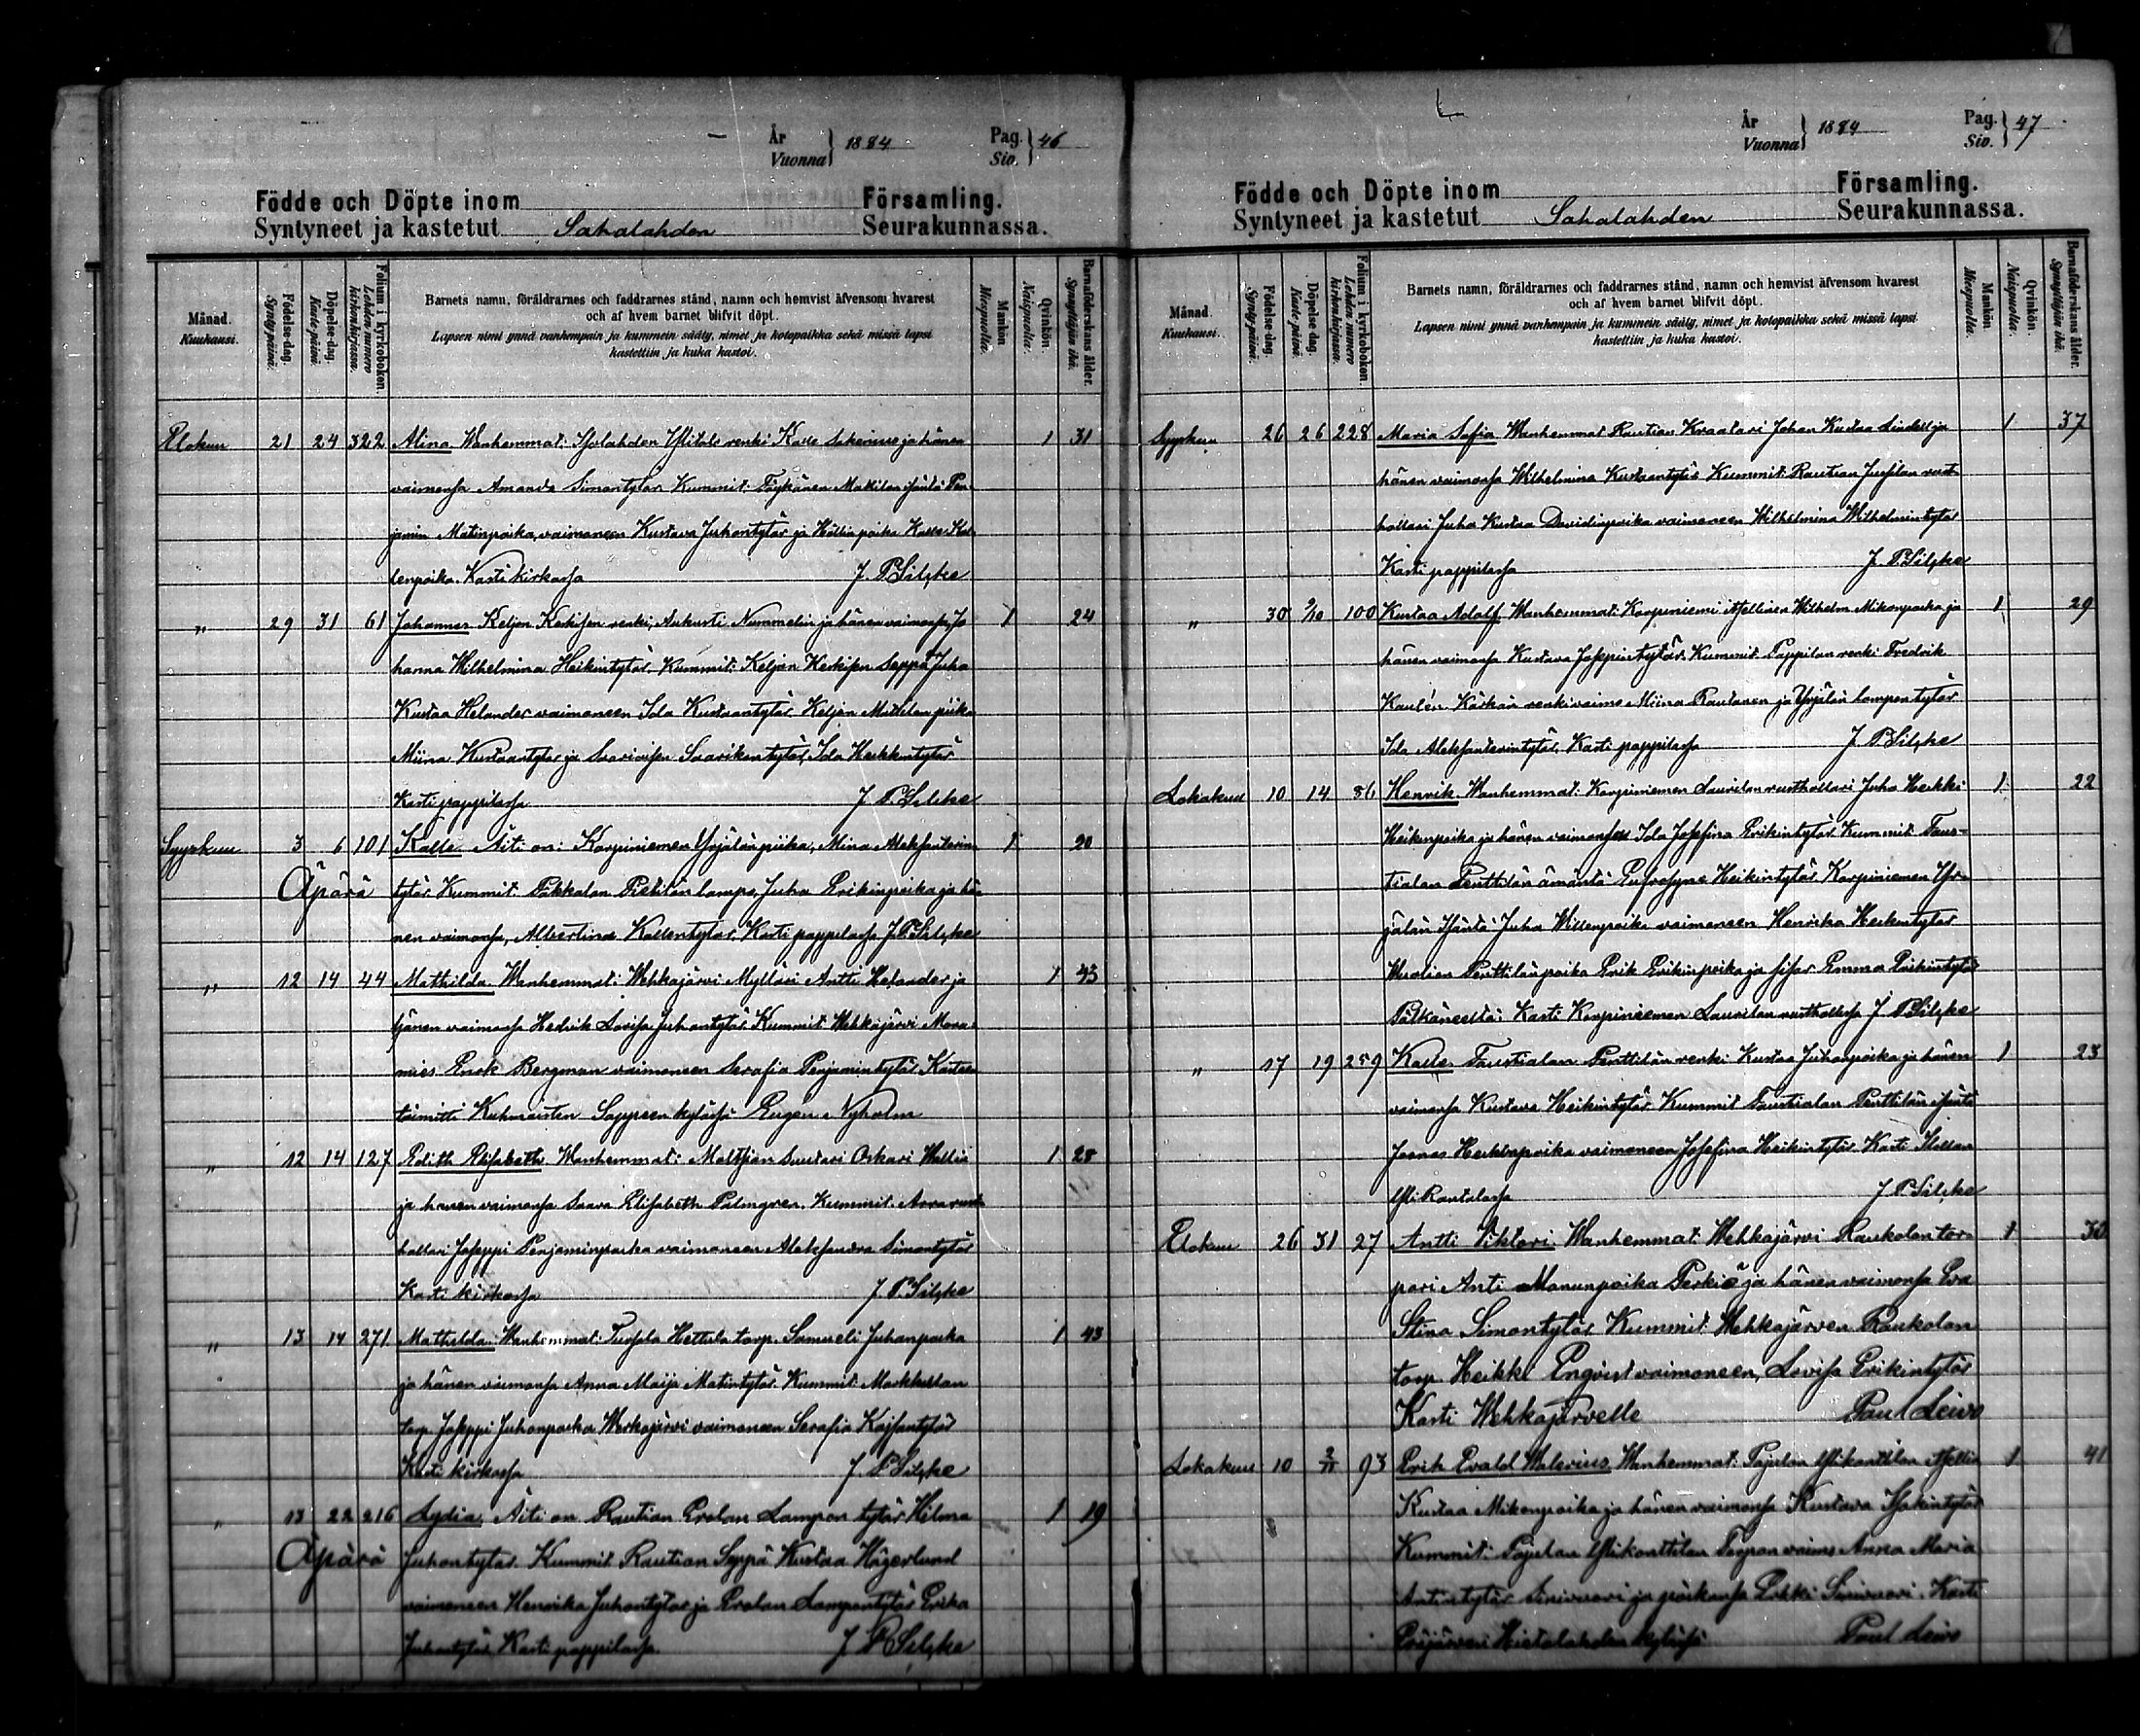 År
Vuonna } 1884 Pag.
Siv. } 46
Födde och Döpte inom Församling.
Syntyneet ja kastetut Sahalahden Seurakunnassa.
Månad. Kuukausi.
Födelse-dag. Synty-päivä.
Döpelse-dag. Kaste-päivä.
Folium i kyrkobokon. Lehden numero kirkonkirjassa.
Barnets namn, föräldrarnes och faddrarnes stånd, namn och hemvist äfvensom hvarest
och af hvem barnet blifvit döpt.
Lapsen nimi ynnä vanhempain ja kummein sääty, nimet ja kotopaikka sekä missä lapsi
kastettiin ja kuka kastoi.
Mankön. Miespuolia.
Qvinkön. Naispuolia.
Barnaföderskans ålder. Synnyttäjän ikä.
Elokuu 21 24 322 Alina Wanhemmat: renki Kalle ja hänen 1 31
vaimonsa Amanda Simontytär Kummit: Mattilan isäntä Pen-
jamin Matinpoika, vaimoneen Kustava Juhontytär ja poika Kalle Kal-
lenpoika. Kasti kirkossa J. P. Silpke
„ 29 31 61 Johannes Keljon Kerkisen renki, Aukusti Nummelin ja hänen vaimonsa, Jo 1 24
hanna Wilhelmina Heikintytär. Kummit: Keljon Kerkisen Seppä Juho
Kustaa Helander vaimoneen Ida Kustaantytär Keljon Mattilan piika
Miina Kustaantytär ja Ida Heikkintytär
Kasti pappilassa J. P. Silpke
Syyskuu 3 6 101 Kalle Äiti on: Karpiniemen Yrjälän piika, Mina Aleksanterin 1 20
Äpärä tytär. Kummit: Pakkalan lampr. Juha Erikinpoika ja hä-
nen vaimonsa, Albertina Kallentytär. Kasti pappilassa J. P. Silpke
„ 12 14 44 Mathilda Wanhemmat: Wehkajärvi Mylläri Antti Helander ja 1 43
hänen vaimonsa Hedvik Lovisa Juhontytär Kummit Wehkajärvi
mies Enok Bergman vaimoneen Serafia Penjamintytär
toimitti Kuhmoisten Sappeen kylässä Eugen Nyholm
„ 12 14 127 Edith Elisabeth Wanhemmat: Oskari 1 28
ja hänen vaimonsa Saara Elisabeth Palmgren. Kummit:
hollari Joseppi Penjaminpoika vaimoneen Aleksandra Simontytär
Kasti kirkossa J. P. Silpke
„ 13 14 271 Mathilda Wanhemmat: Hettula torp. Samueli Juhanpoika 1 43
ja hänen vaimonsa Anna Maija Matintytär. Kummit:
torp. Joseppi Juhanpoika vaimoneen Serafia
Kasti kirkossa J. P. Silpke
„ 13 22 216 Lydia Äiti on Rautian Erolan Lampon tytär Hilma 1 19
Äpärä Juhontytär. Kummit Rautian Seppä Kustaa Hägerlund
vaimoneen Henrika Juhontytär ja Erolan Lampontytär Erika
Juhontytär Kasti pappilassa. J. P. Silpke
År
Vuonna } 1884 Pag.
Siv. } 47
Födde och Döpte inom Församling.
Syntyneet ja kastetut Sahalahden Seurakunnassa.
Månad. Kuukausi.
Födelse-dag. Synty-päivä.
Döpelse dag. Kaste-päivä.
Folium i kyrkobokon. Lehden numero kirkonkirjassa.
Barnets namn, föräldrarnes och faddrarnes stånd, namn och hemvist äfvensom hvarest
och af hvem barnet blifvit döpt.
Lapsen nimi ynnä vanhempain ja kummein sääty, nimet ja kotopaikka sekä missä lapsi
kastettiin ja kuka kastoi.
Mankön. Miespuolia.
Qvinkön. Naispuolia.
Barnaföderskans ålder. Synnyttäjän ikä.
Syyskuu 26 26 228 Maria Sofia Wanhemmat Rautian Kraatari Johan Kustaa Lindell ja 1 37
hänen vaimonsa Wilhelmina Kustaantytär Kummit: Rautian Jussilan rust-
hollari Juho Kustaa Davidinpoika vaimoneen Wilhelmina Wilhelmintytär
Kasti pappilassa J. P. Silpke
„ 30 9/10 100 Kustaa Adolf Wanhemmat: Karpiniemi itsellinen Wilhelm Mikonpoika ja 1 29
hänen vaimonsa Kustava Josepintytär. Kummit: Pappilan renki Fredrik
Kaulén Kärkän renkivaimo Miina Rautanen ja Yrjälän lampon tytär
Ida Aleksanterintytär. Kasti pappilassa J. P. Silpke
Lokakuu 10 14 86 Henrik Wanhemmat: Karpiniemen Laurilan rusthollari Juho Heikki 1 22
Heikinpoika ja hänen vaimonsa Ida Josefina Erikintytär Kummit: Taus-
tialan Penttilän ämäntä Eufrosyne Heikintytär Karpiniemen Yr-
jälän Isäntä Juha Willenpoika vaimoneen Henrika Heikintytär
Penttilänpoika Erik Erikinpoika ja sisar Emma Erikintytär
Pälkäneeltä: Kasti Karpiniemen Laurilan rusthollissa J. P. Silpke
„ 17 19 259 Kalle Taustialan Penttilän renki Kustaa Juhonpoika ja hänen 1 23
vaimonsa Kustava Heikintytär Kummit Taustialan Penttilän isäntä
Joonas Heikinpoika vaimoneen Josefina Heikintytär. Kasti
J. P. Silpke
Elokuu 26 31 27 Antti Viktori Wanhemmat: Wehkajärvi Raukolan tor- 1 30
pari Anti Manunpoika Perkiö ja hänen vaimonsa Eva
Stina Simontytär Kummit Wehkajärven Raukolan
torp. Heikki Enqvist vaimoneen, Lovisa Erikintytär
Kasti Wehkajärvelle Paul Leivo
Lokakuu 10 2/11 93 Erik Evald Walerius Wanhemmat: Pajulan 1 41
Kustaa Mikonpoika ja hänen vaimonsa Kustava Isakintytär
Kummit: Pajulan Torpan vaimo Anna Maria
Antintytär Sinivuori ja poikansa Erkki Sinivuori. Kasti
Hietalahden kylässä Paul Leivo